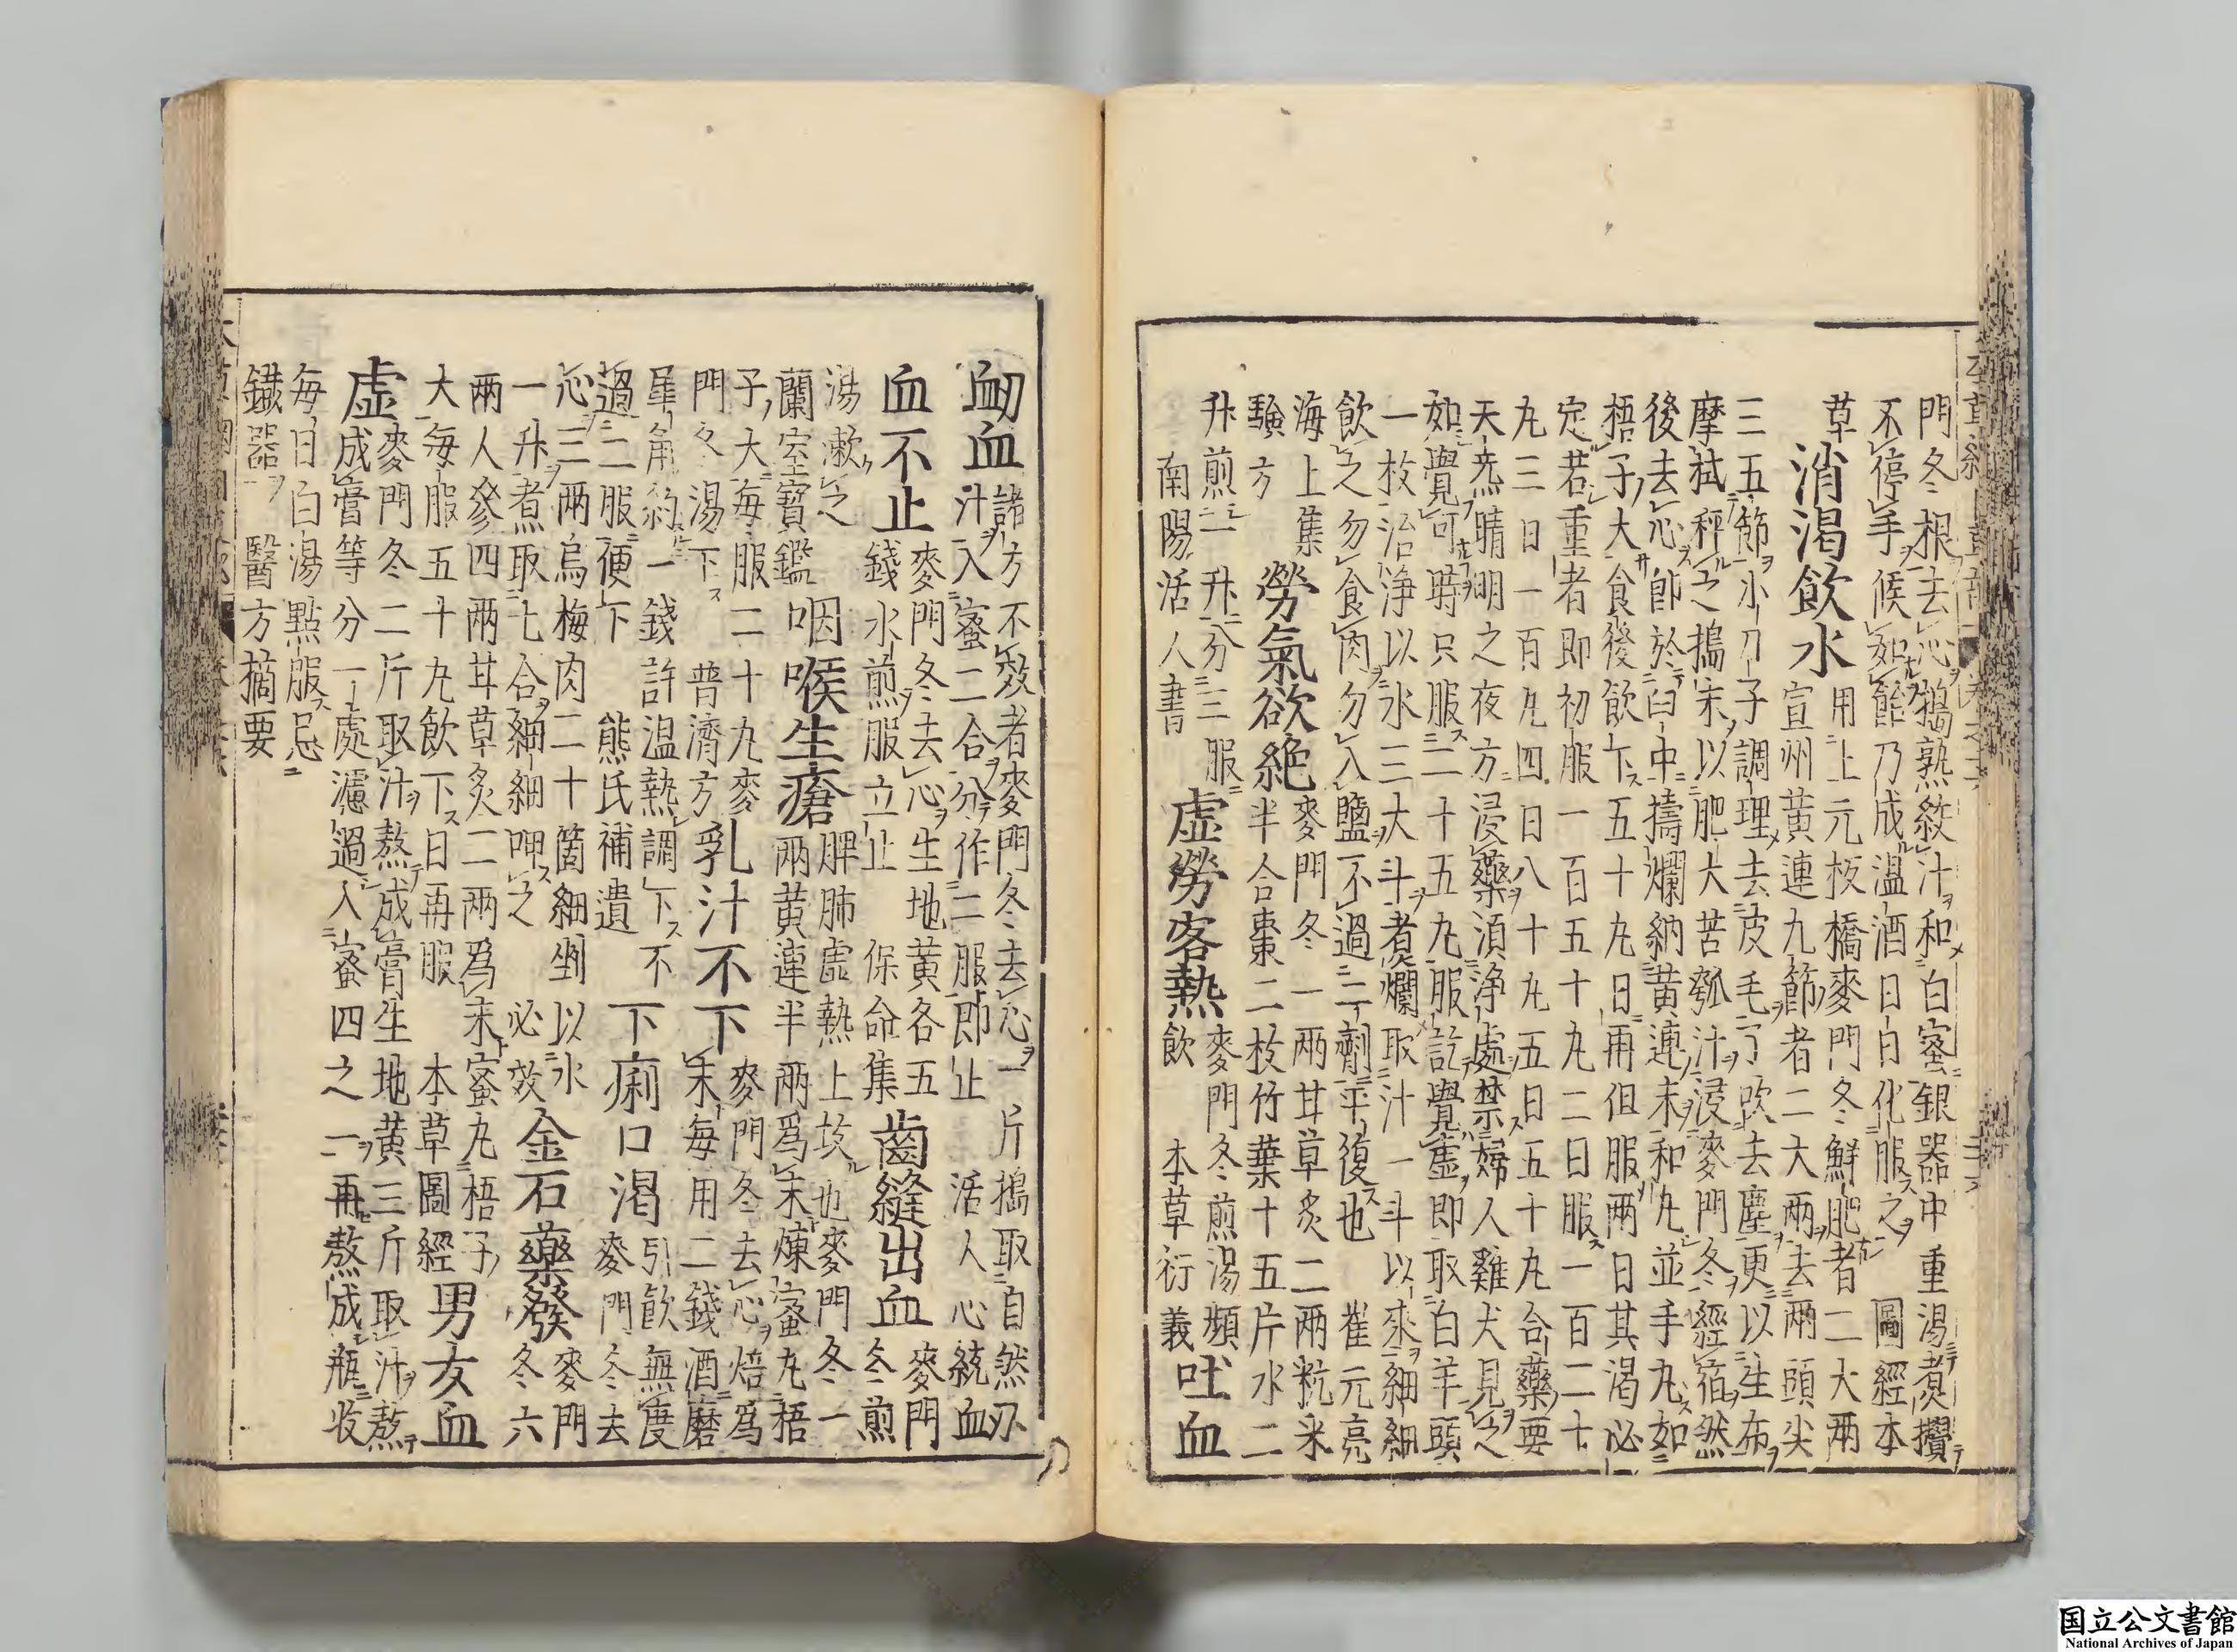 門冬根去心搗熟絞汁和白蜜銀器中重湯煮攪
不停手候如飴乃成温酒日日化服之 圖經本
草
消渴飲水
用上元板橋麥門冬鮮肥者二大兩
宣州黃連九節者二大兩去兩頭尖
三五節小刀子調理去皮毛了吹去塵更以生布
摩拭秤之搗末以肥大苦瓠汁浸麥門冬經宿然
後去心卽於臼中擣爛納黃連末和丸並手丸如
梧子大食後飲下五十丸日再但服兩日其渴必
定若重者即初服一百五十丸二日服一百二十
丸三日一百丸四日八十丸五日五十丸合藥要
天炁晴明之夜方浸藥須淨處禁婦人雞犬見之
如覺可時只服二十五丸服訖覺虛即取白羊頭
一枚治淨以水三大斗煮爛取汁一斗以來細細
飲之勿食肉勿入鹽不過二劑平復也 崔元亮
海上集
驗方
勞氣欲絶
麥門冬一兩甘草炙二兩粳米
半合棗二枚竹葉十五片水二
升煎一升分三服
南陽活人書
虛勞客熱
麥門冬煎湯頻
飲 本草衍義
吐血
衄血
諸方不效者麥門冬去心一斤搗取自然
汁入蜜二合分作二服即止 活人心統
衄
血不止
麥門冬去心生地黃各五
錢水煎服立止 保命集
齒縫出血
麥門
冬煎
湯漱之
蘭室寶鑑
咽喉生瘡
脾肺虛熱上攻也麥門冬一
兩黃連半兩爲末煉蜜丸梧
子大每服二十丸麥
門冬湯下 普濟方
乳汁不下
麥門冬去心焙爲
末每用二錢酒磨
犀角約一錢許温熱調下不
過二服便下 熊氏補遺
下痢口渴
引飲無度
麥門冬去
心三兩烏梅肉二十箇細剉以水
一升煮取七合細細呷之 必效
金石藥發
麥門
冬六
兩人參四兩甘草炙二兩爲末蜜丸梧子
大每服五十丸飲下日再服 本草圖經
男女血
虛
麥門冬三斤取汁熬成膏生地黃三斤取汁熬
成膏等分一處濾過入蜜四之一再熬成瓶收
每日白湯點服忌
鐵器 醫方摘要
国立公文書館
National Archives of Japan